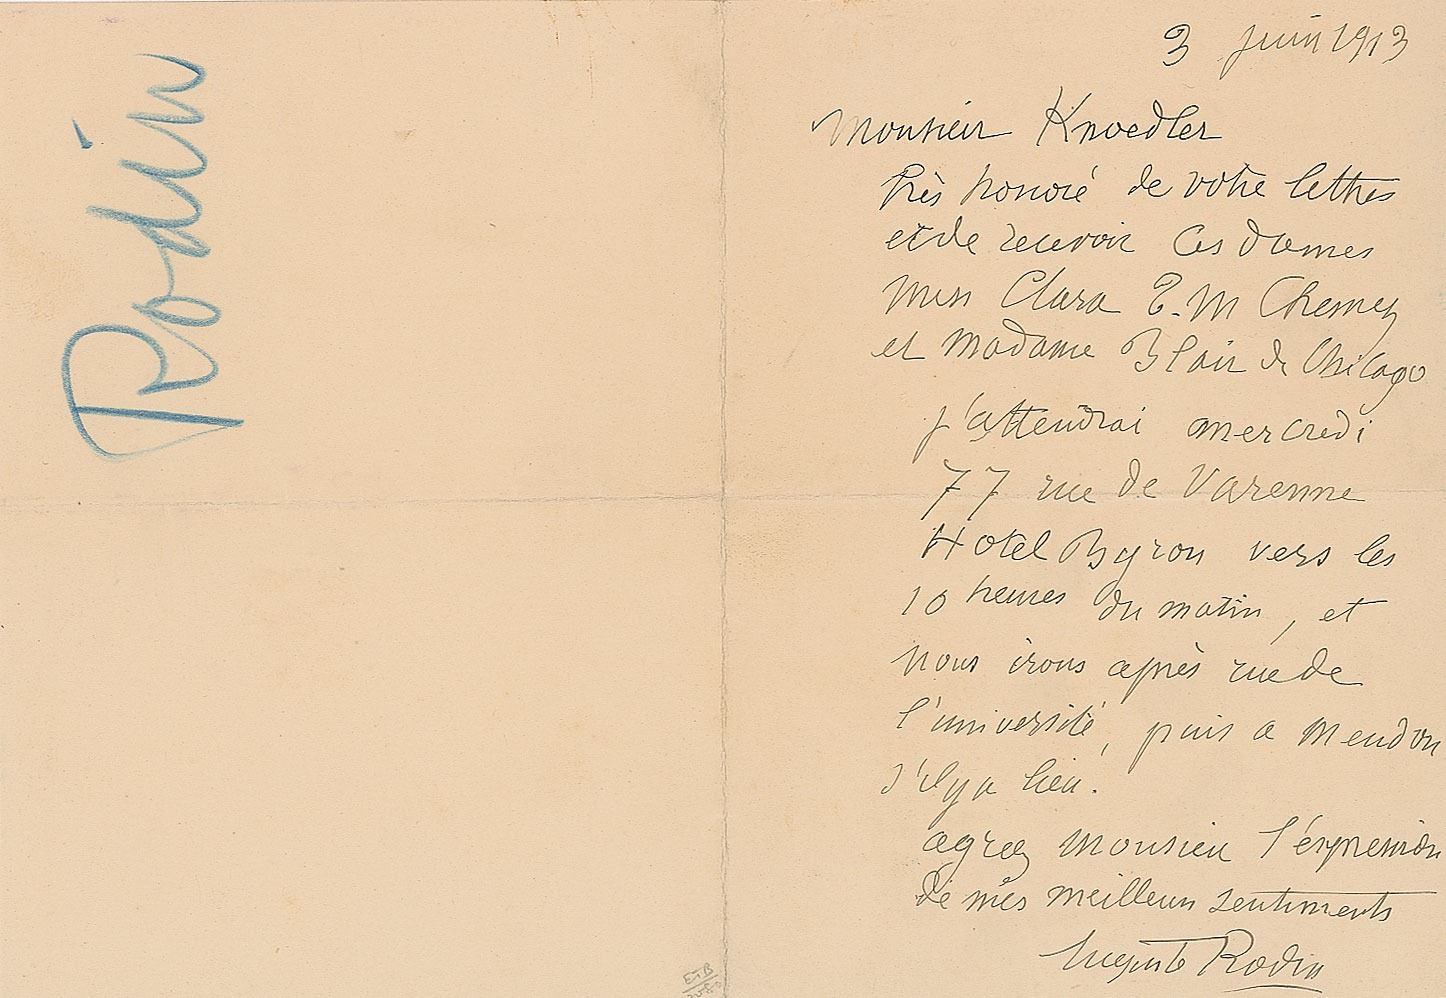 Rodin
3 juin 1913
Monsieur Knoedler
Très honoré de votre lettres
et de recevoir ces dames
Miss Clara E.M Chesney
et Madame Blair de Chicago
j'attendrai mercredi
77 rue de Varenne
Hotel Byron vers les
10 heures du matin, et
nous irons après rue de
l'université, puis a Meudon
s'il y a lieu.
agreez Monsieur l'éxpression
de mes meilleurs sentiments
Auguste Rodin
ETB